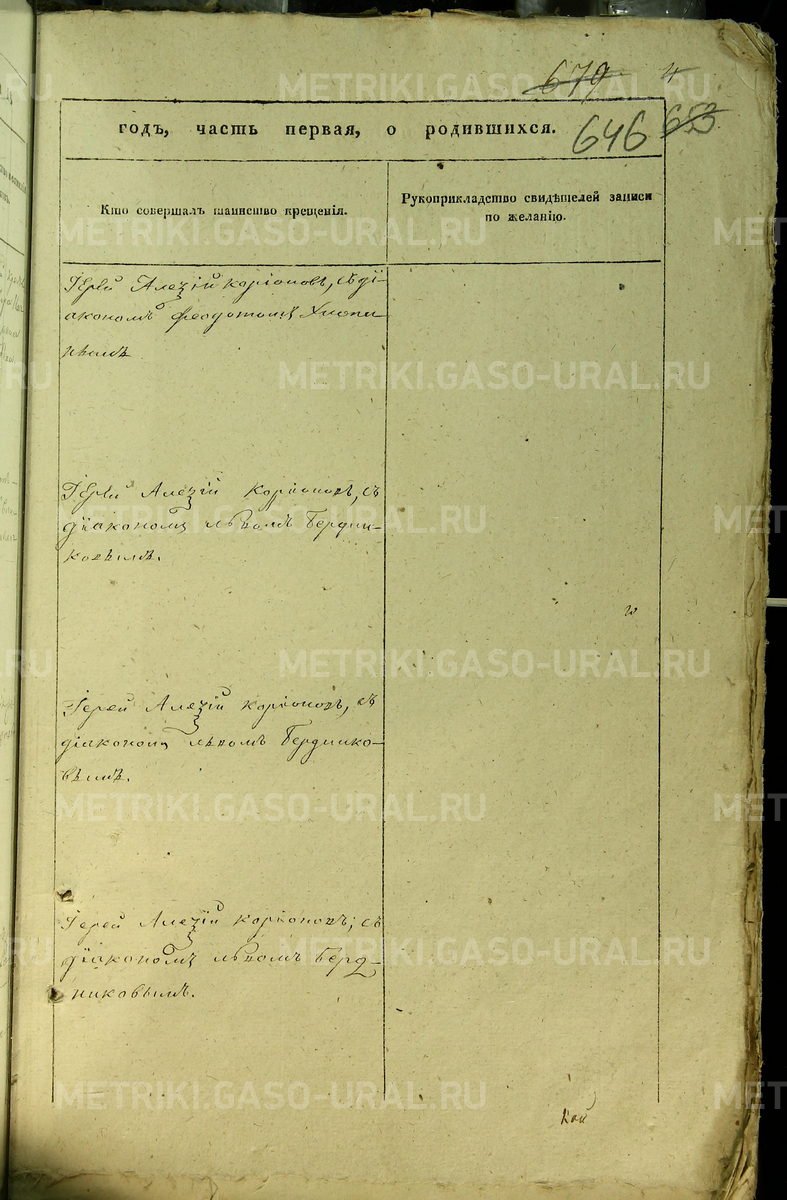 679 4
годъ, часть первая, о родившихся. 646 653
Кто совершалъ таинство крещенія.
Рукоприкладство свидѣтелей записи
по желанію.
Іерей Алезій Коріоновъ, съ ді-
акономъ Феодотомъ
Іерей Алезій Коріоновъ, съ
діакономъ львомъ Бердни-
ковымъ.
Іерей Алезій Коріоновъ, съ
діакономъ львомъ Бердnико-
вымъ.
Іерей Алезій Коріоновъ, съ
діакономъ львомъ Берд-
никовымъ.
METRIKI.GASO-URAL.RU